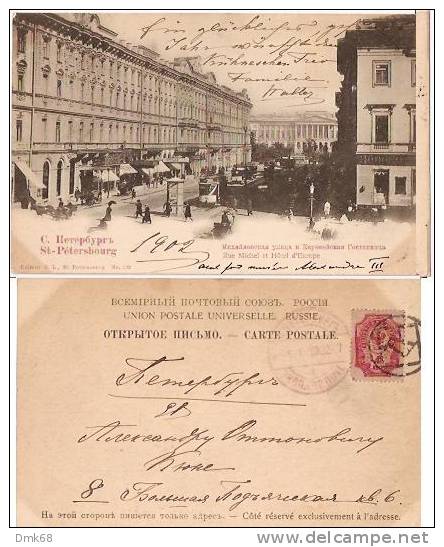 Ein glückliches
Jahr wünscht dem
Kühneschen Trio
Familie
С. Петербургъ
St-Pétersbourg
1902
Михайловская улица и Европейская Гостинница
Rue Michel et Hôtel d'Europe
Alexandre III
ВСЕМІРНЫЙ ПОЧТОВЫЙ СОЮЗЪ. РОССІЯ
UNION POSTALE UNIVERSELLE. RUSSIE.
ОТКРЫТОЕ ПИСЬМО. — CARTE POSTALE.
Петербургъ
Александру Оттоновичу
Кюне
8 Большая Подъяческая кв. 6
На этой сторонѣ пишется только адресъ. — Côté réservé exclusivement à l'adresse.
Dmk68
delcampe.net